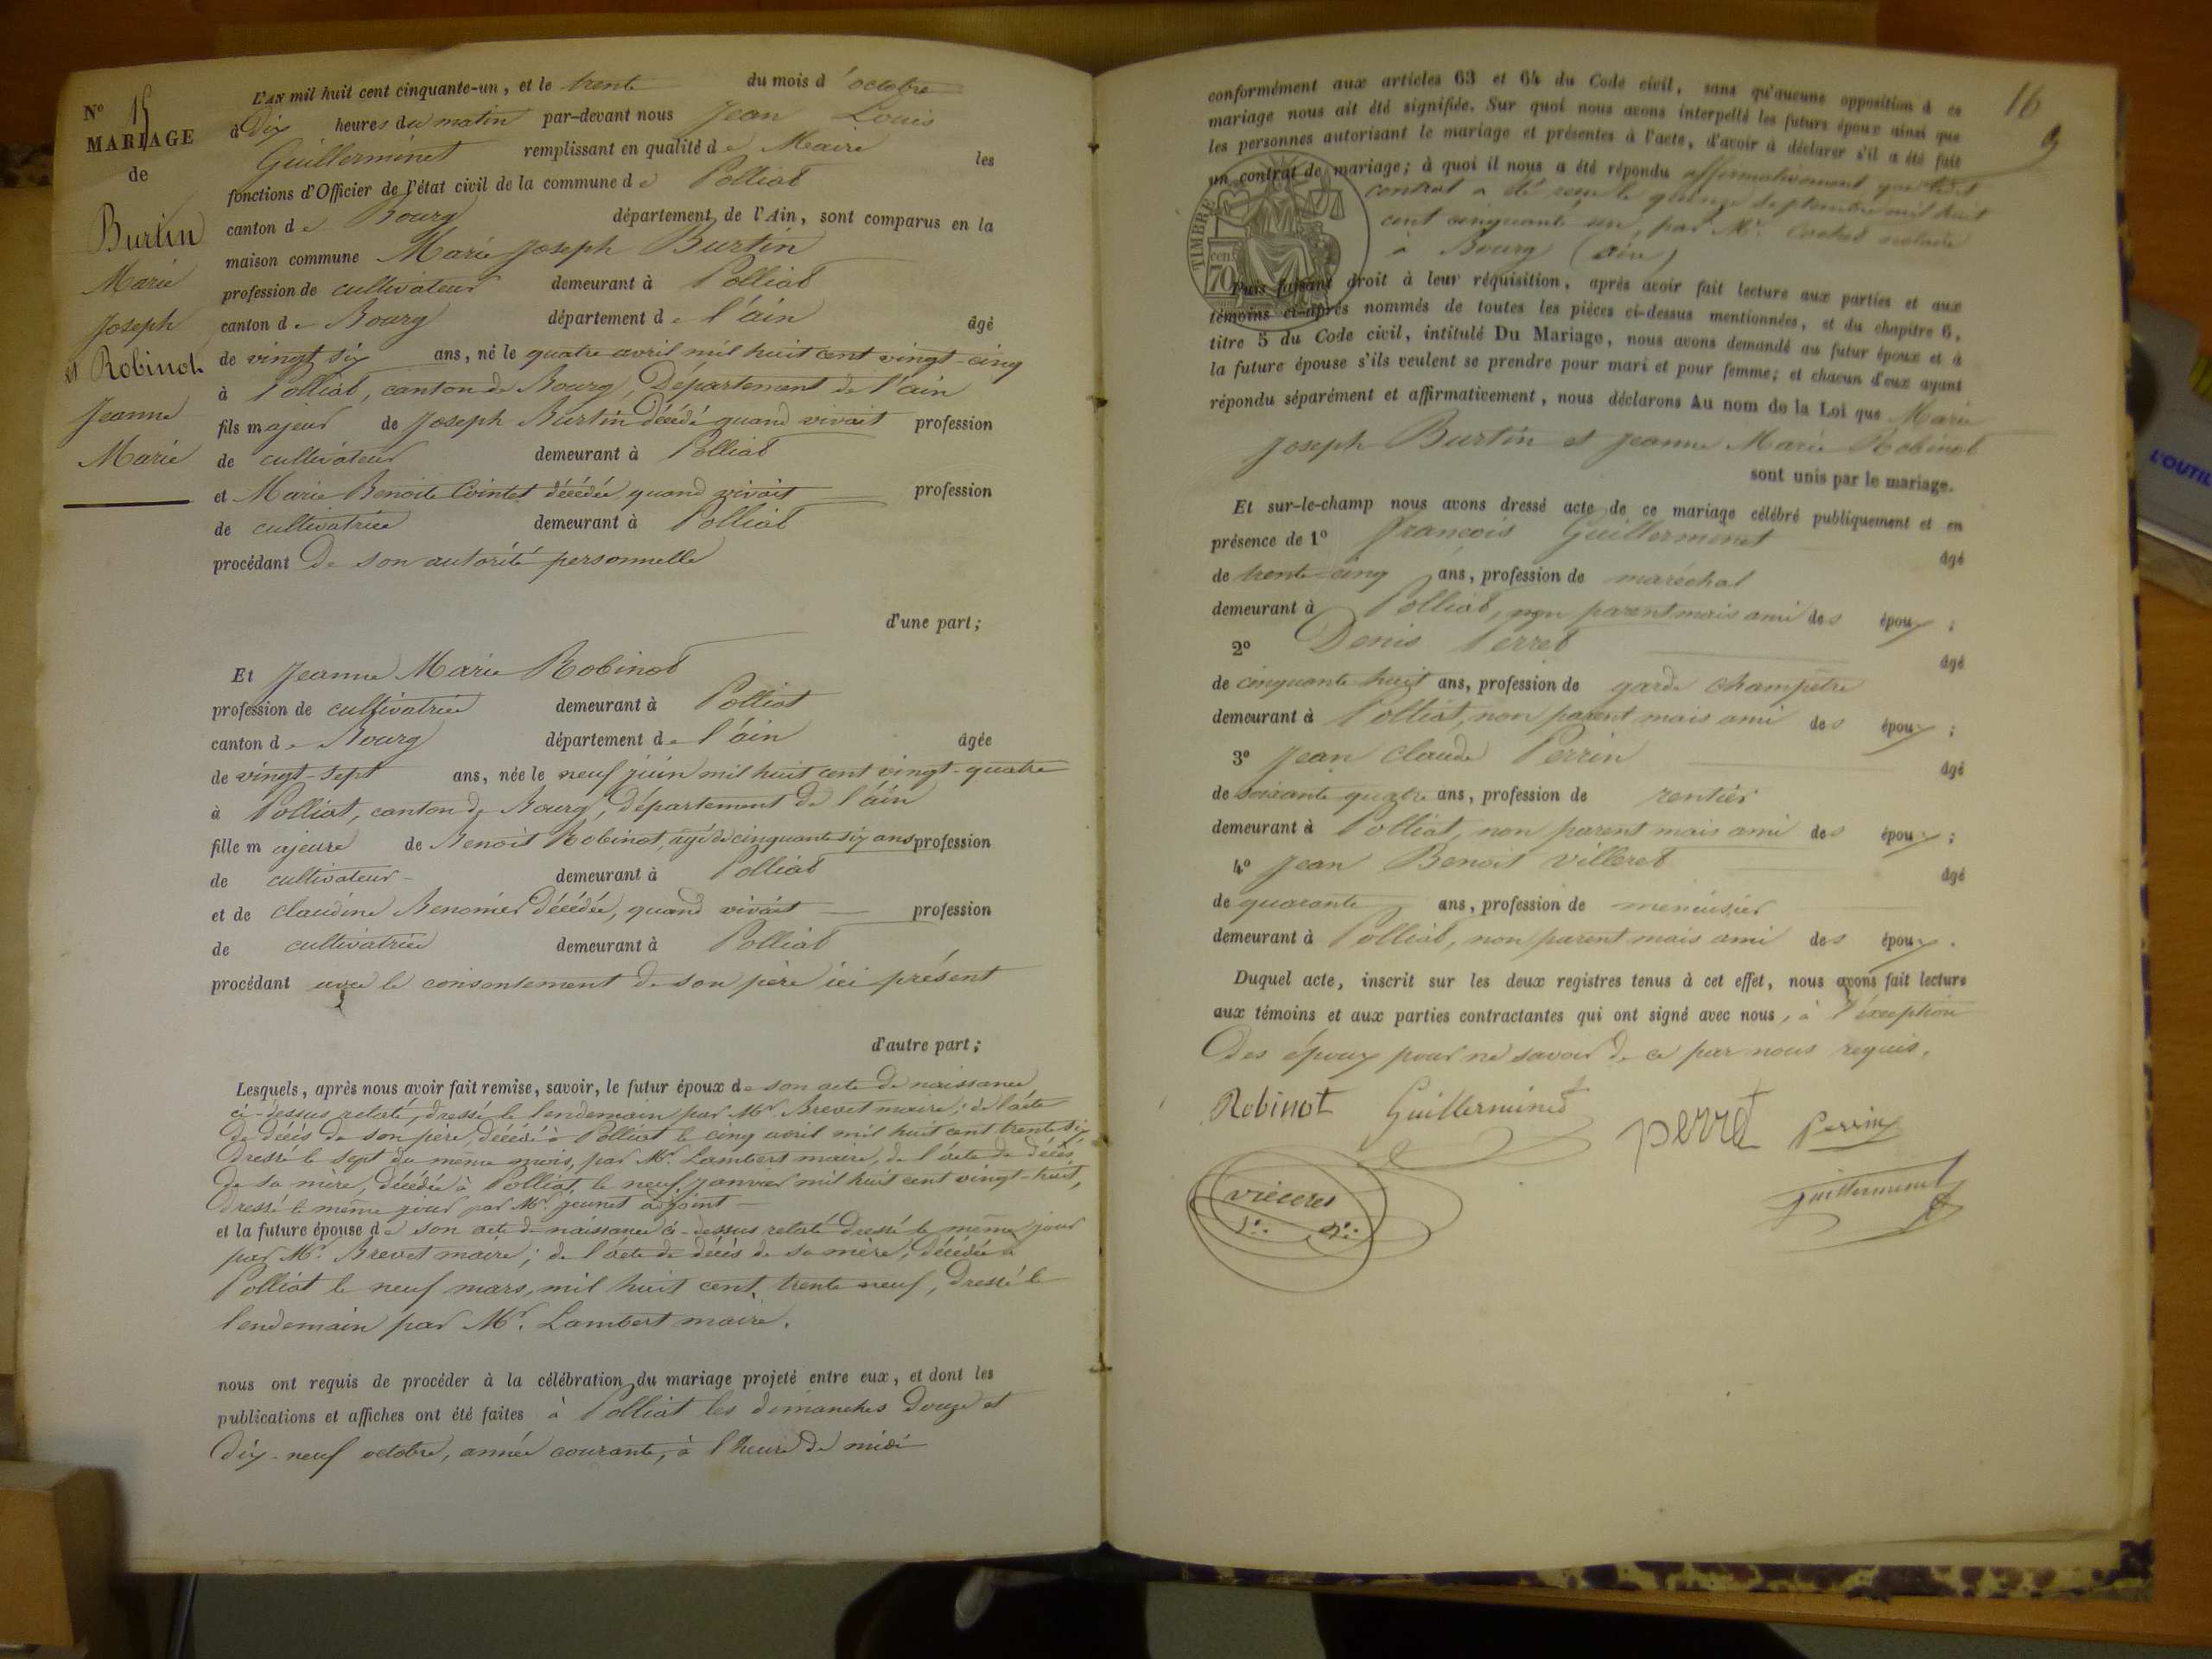 N° 15
MARIAGE
de
Burtin
Marie
Joseph
et Robinot
Jeanne
Marie
L'AN mil huit cent cinquante-un, et le trente du mois d'octobre
à Dix heures du matin par-devant nous Jean Louis
Guillerminet remplissant en qualité de Maire les
fonctions d'Officier de l'état civil de la commune de Polliat
canton de Bourg département de l'Ain, sont comparus en la
maison commune Marie Joseph Burtin
profession de cultivateur demeurant à Polliat
canton de Bourg département de l'ain âgé
de vingt six ans, né le quatre avril mil huit cent vingt-cinq
à Polliat, canton de Bourg, Département de l'ain
fils majeur de Joseph Burtin Décédé quand vivait profession
de cultivateur demeurant à Polliat
et Marie Benoite Cointet décédée quand vivait profession
de cultivatrice demeurant à Polliat
procédant De son autorité personnelle
d'une part;
Et Jeanne Marie Robinot
profession de cultivatrice demeurant à Polliat
canton de Bourg département de l'ain âgée
de vingt-sept ans, née le neuf juin mil huit cent vingt-quatre
à Polliat, canton de Bourg, département de l'ain
fille majeure de Benoit Robinot, âgé de cinquante six ans profession
de cultivateur demeurant à Polliat
et de claudine Renomier Décédée, quand vivait profession
de cultivatrice demeurant à Polliat
procédant avec le consentement de son père ici présent
d'autre part;
Lesquels, après nous avoir fait remise, savoir, le futur époux de son acte de naissance
ci-dessus relaté, dressé le lendemain par Mr Brevet maire; de l'acte
De décès de son père, décédé à Polliat le cinq avril mil huit cent trente six
Dressé le sept du même mois, par Mr. Lambert maire, de l'acte de décès
de sa mère, décédée à Polliat le neuf janvier mil huit cent vingt-huit,
Dressé le même jour par Mr. jeunet adjoint
et la future épouse de son acte de naissance ci-dessus relaté Dressé le même jour
par Mr. Brevet maire; de l'acte de décès de sa mère, Décédée à
Polliat le neuf mars, mil huit cent trente neuf, Dressé le
lendemain par Mr. Lambert maire.
nous ont requis de procéder à la célébration du mariage projeté entre eux, et dont les
publications et affiches ont été faites à Polliat les dimanches Douze et
Dix-neuf octobre, année courante, à l'heure de midi
16
conformément aux articles 63 et 64 du Code civil, sans qu'aucune opposition à ce
mariage nous ait été signifiée. Sur quoi nous avons interpellé les futurs époux ainsi que
les personnes autorisant le mariage et présentes à l'acte, d'avoir à déclarer s'il a été fait
un contrat de mariage; à quoi il nous a été répondu affirmativement que ledit
contrat a été reçu le quinze septembre mil huit
cent cinquante un, par Mr. notaire
à Bourg (ain)
TIMBRE
70 cen.
Puis faisant droit à leur réquisition, après avoir fait lecture aux parties et aux
témoins ci-après nommés de toutes les pièces ci-dessus mentionnées, et du chapitre 6,
titre 5 du Code civil, intitulé Du Mariage, nous avons demandé au futur époux et à
la future épouse s'ils veulent se prendre pour mari et pour femme; et chacun d'eux ayant
répondu séparément et affirmativement, nous déclarons Au nom de la Loi que Marie
Joseph Burtin et Jeanne Marie Robinot
sont unis par le mariage.
Et sur-le-champ nous avons dressé acte de ce mariage célébré publiquement et en
présence de 1° françois Guillerminet âgé
de trente-cinq ans, profession de maréchal
demeurant à Polliat, non parent mais ami des époux;
2° Denis Perret âgé
de cinquante huit ans, profession de garde champêtre
demeurant à Polliat, non parent mais ami des époux;
3° Jean Claude Perrin âgé
de soixante quatre ans, profession de rentier
demeurant à Polliat, non parent mais ami des époux;
4° Jean Benoit Villeret âgé
de quarante ans, profession de menuisier
demeurant à Polliat, non parent mais ami des époux.
Duquel acte, inscrit sur les deux registres tenus à cet effet, nous avons fait lecture
aux témoins et aux parties contractantes qui ont signé avec nous, à l'exception
Des époux pour ne savoir de ce par nous requis.
Robinot Guillerminet perret Perrin
Guillerminet
L'OUTIL